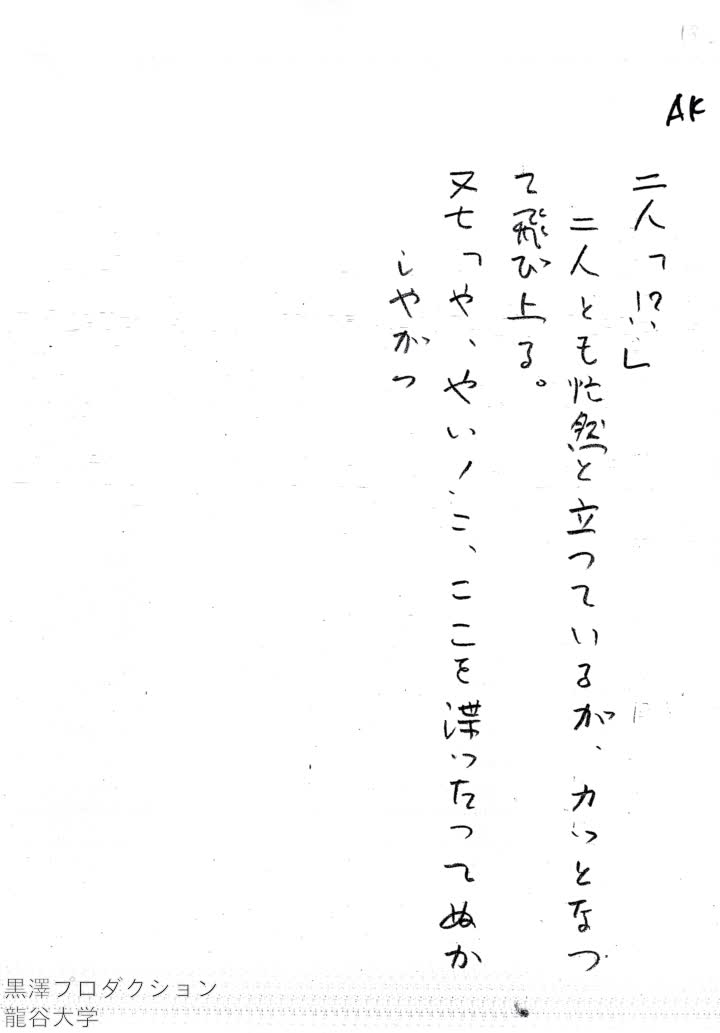 AK
二人「!?…」
二人とも忙然と立つているが、カッとなつ
て飛び上る。
又七「や、やい!こ、ここを渫ったってぬか
しやがつ
黒澤プロダクション
龍谷大学